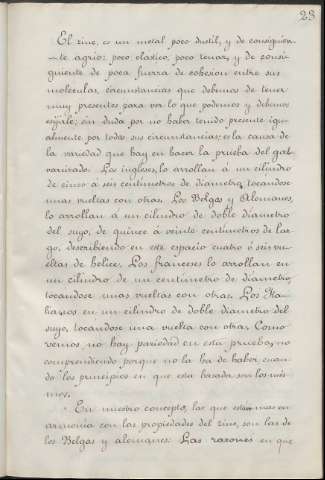 23
El zinc, es un metal poco ductil, y de consiguien-
-te agrio: poco elastico, poco tenaz, y de consi-
guiente de poca fuerza de cohesion entre sus
moleculas, circunstancias que debemos de tener
muy presentes para ver lo que podemos y debemos
exijirle; sin duda por no haber tenido presente igu-
almente por todos sus circunstancias; es la causa de
la variedad que hay en hacer la prueba del gal-
vanizado. Los ingleses, lo arrollan á un cilindro
de cinco á seis centimetros de diametro, tocandose
unas vueltas con otras. Los Belgas y Alemanes,
lo arrollan á un cilindro de doble diametro
del suyo, de quince á veinte centimetros de lar-
go, describiendo en este espacio cuatro ó seis vu-
eltas de helice. Los franceses lo arrollan en
un cilindro de un centimetro de diametro,
tocandose unas vueltas con otras. Los Ita-
lianos en un cilindro de doble diametro del
suyo, tocandose una vuelta con otra. Como
vemos no hay variedad en esta prueba, no
comprendiendo porque no la ha de haber, cuan-
do los principios en que esta basada son los mis-
mos.
En nuestro concepto, las que estan mas en
armonia con las propiedades del zinc, son las de
los Belgas y alemanes. Las razones en que